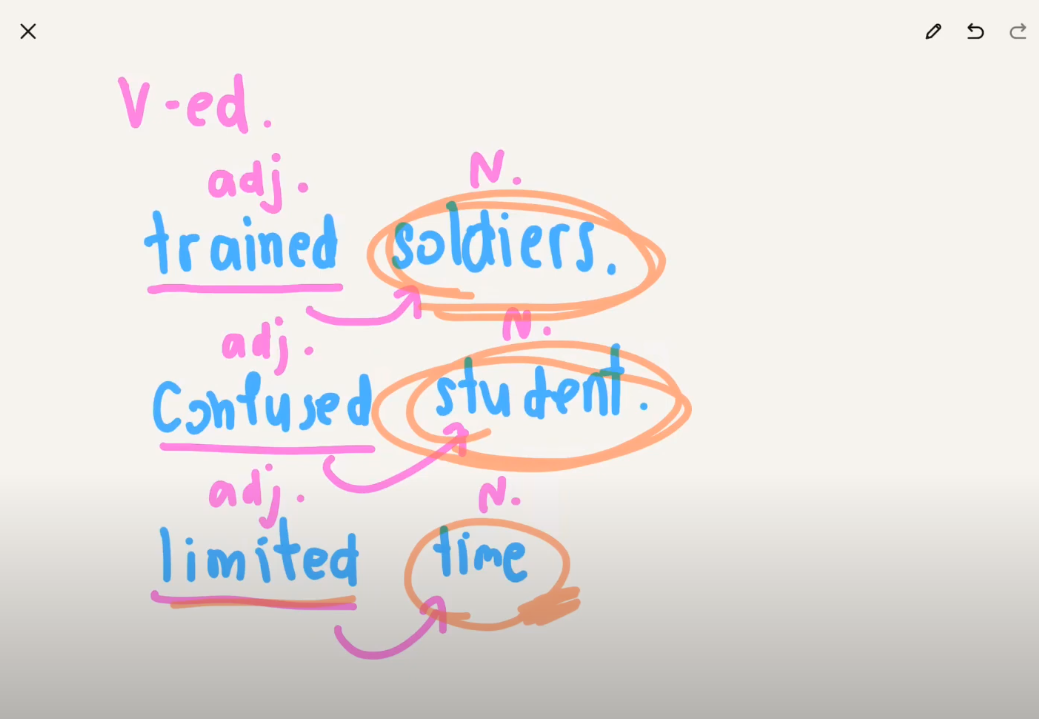 V-ed.
adj. N.
trained soldiers.
adj. N.
Confused student.
adj. N.
limited time